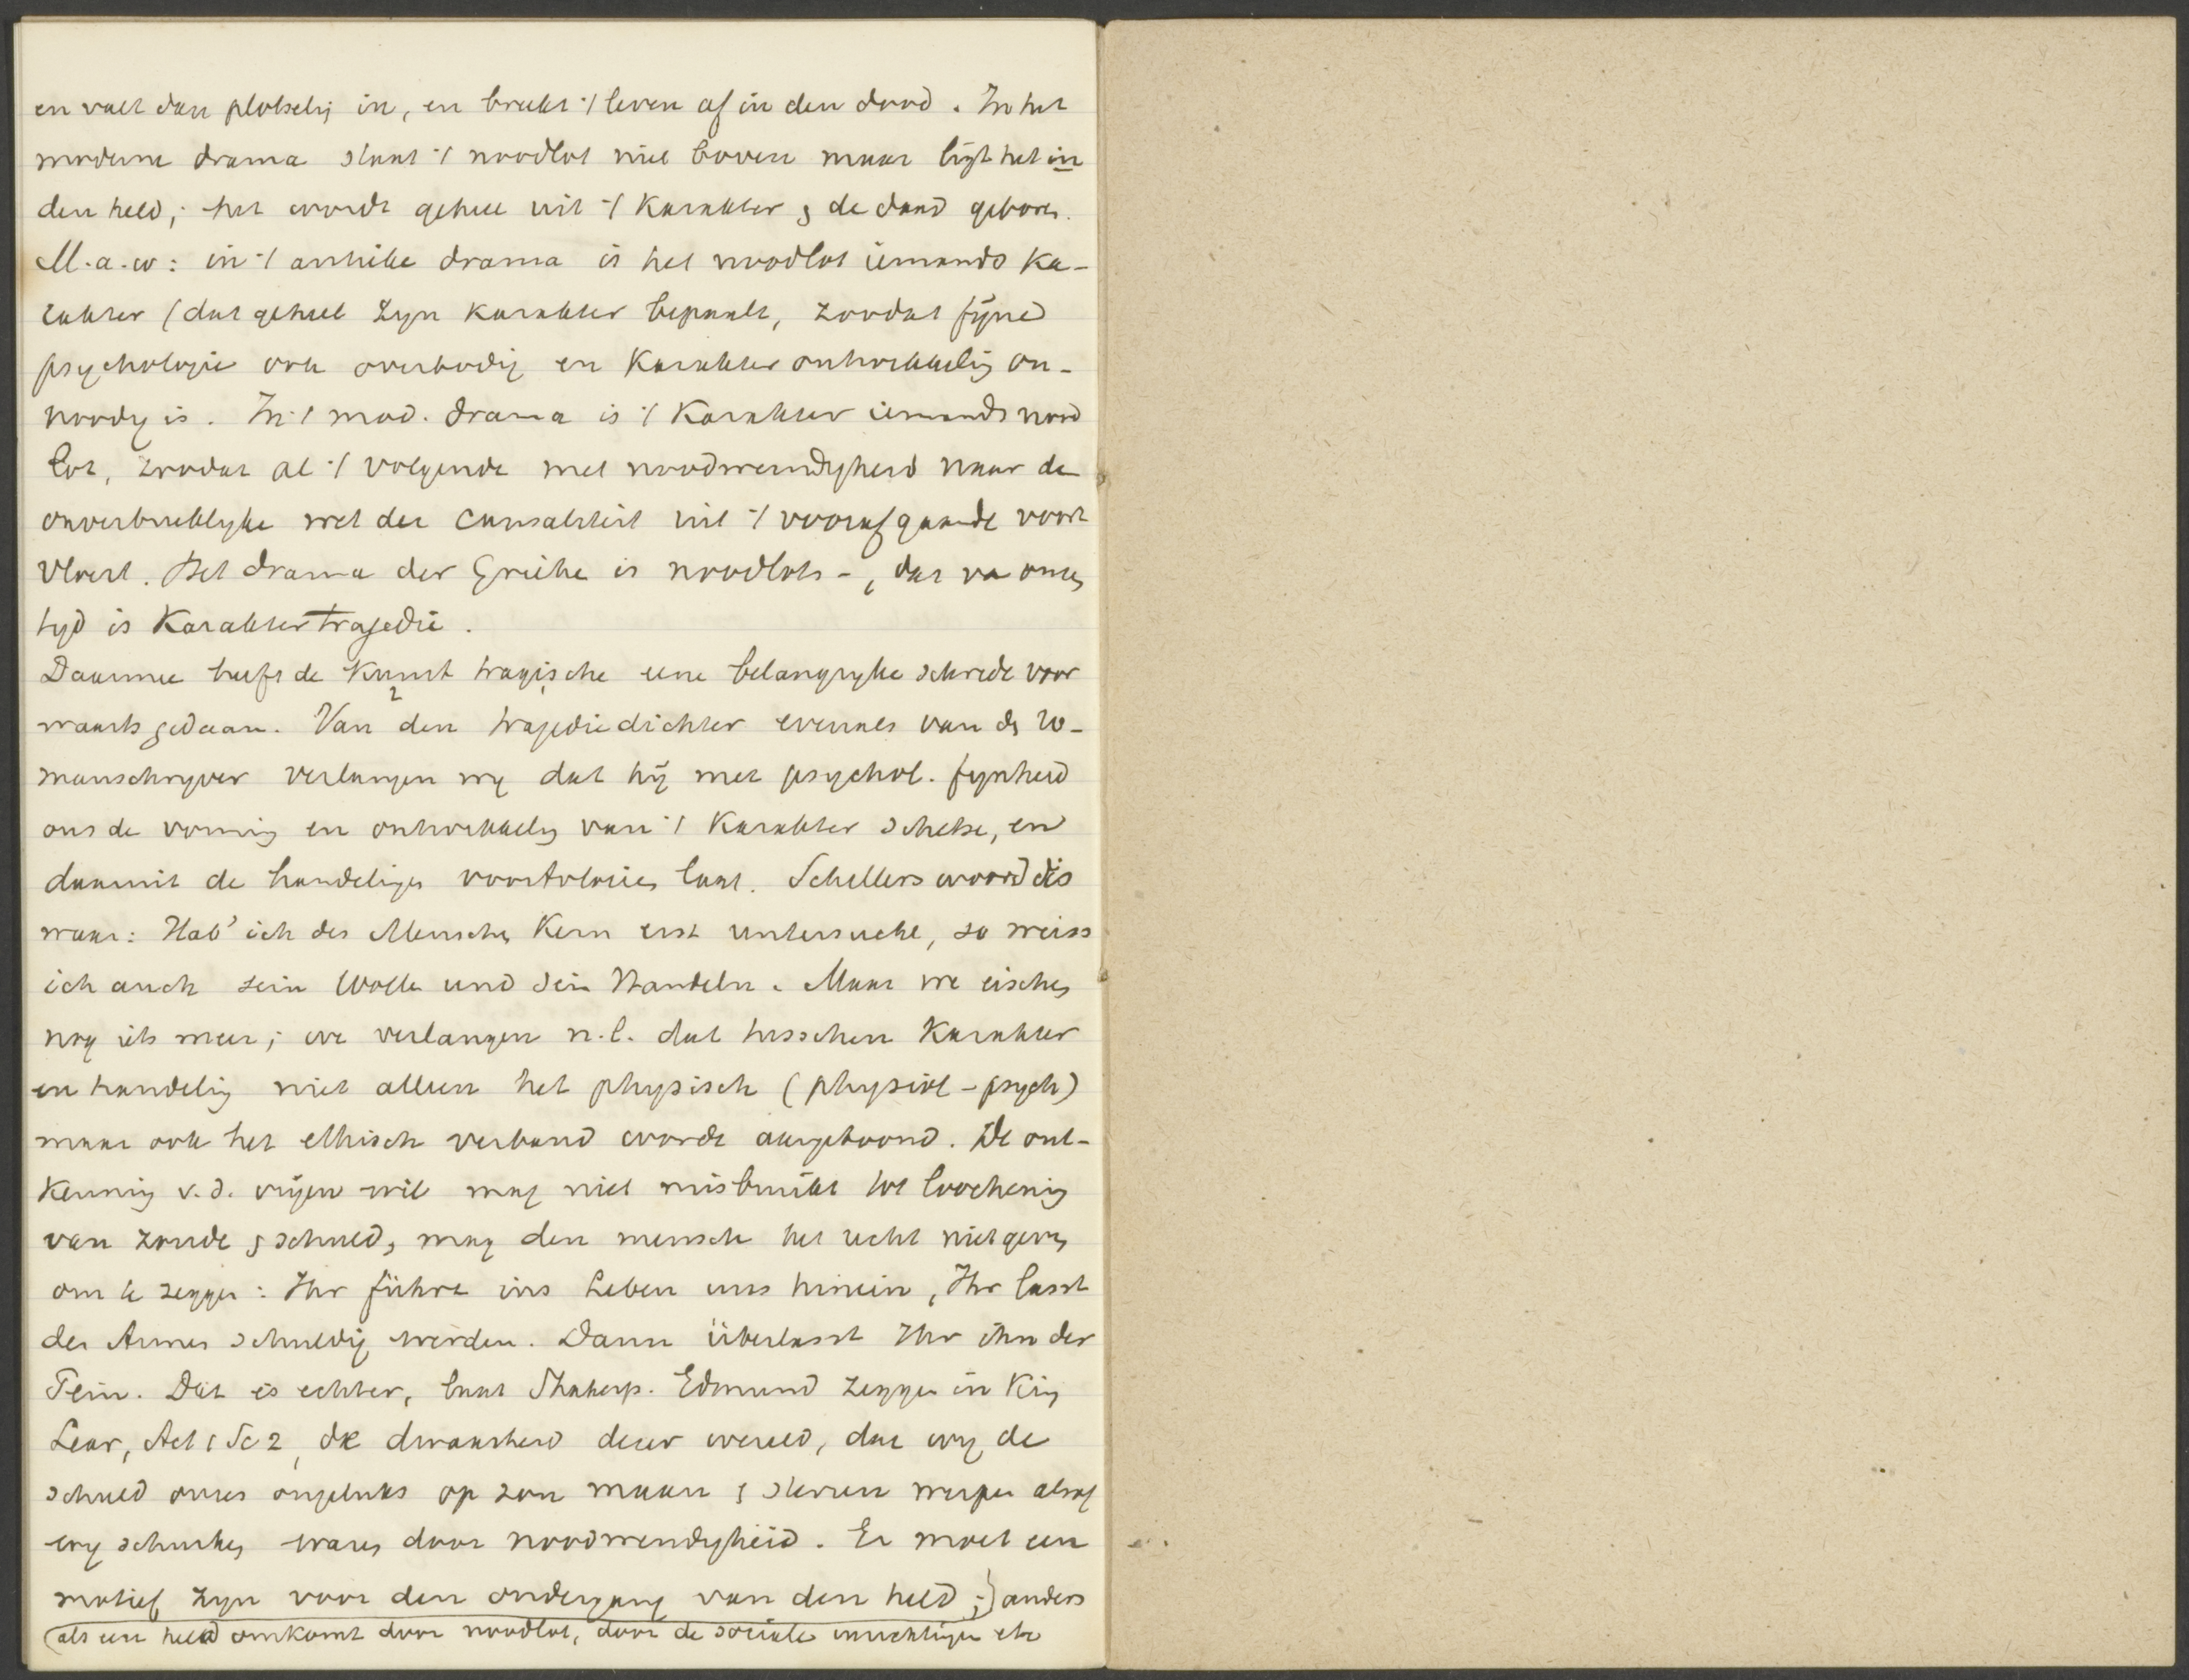 en valt dan plotselij in, en breekt 't leven af in den dood. In het
moderne drama staat 't noodlot niet boven maar ligt het in
den held; het wordt geheel uit 't Karakter & de daad geboren.
M.a.w: in 't antieke drama is het noodlot iemands Ka-
rakter (dat geheel zyn karakter bepaalt, zoodat fijne
psychologie ook overbodig en Karakterontwikkeling on-
noody is. In 't mod. drama is 't Karakter iemands nood
lot, zoodat al 't volgende met noodwendigheid naar de
onverbreeklyke wet der causaliteit uit 't voorafgaande voort
vloeit. Het drama der Grieke is noodlots-, dat va onzen
tyd is Karaktertragedie.
Daarmee heeft de Kunst tragische eene belangryke schrede voor
waarts gedaan. Van den tragediedichter evenals van de ro-
manschryver verlangen wy dat hij met psychol. fynheid
ons de vorming en ontwikkeling van 't Karakter schetse, en
daaruit de handelingen voortvloeien laat. Schillers woord is
waar: Hab' ich des Menschen Kern erst untersucht, so weiss
ich auch sein Wolle und sein Handeln. Maar we eischen
nog iets meer; we verlangen n.l. dat tusschen Karakter
en handeling niet alleen het physisch (physiol-psych)
maar ook het ethisch verband worde aangetoond. De ont-
kenning v.d. vrijen wil mag niet misbruikt tot loochening
van zonde & schuld, mag den mensch het recht niet geven
om te zeggen: Ihr führt ins Leben uns hinein, Ihr lasst
der Armen schuldig werden. Dann überlasst Ihr ihn der
Pein. Dat is echter, laat Shakesp. Edmund zeggen in King
Lear, Act 1 Sc 2, de dwaasheid dezer wereld, dat wy de
schuld onzes ongeluks op zon maan & sterren werpen alsof
wy schurken waren door noodwendigheid. Er moet een
motief zyn voor den ondergang van den held;) anders
(als een held omkomt door noodlot, door de sociale inrichtingen etc